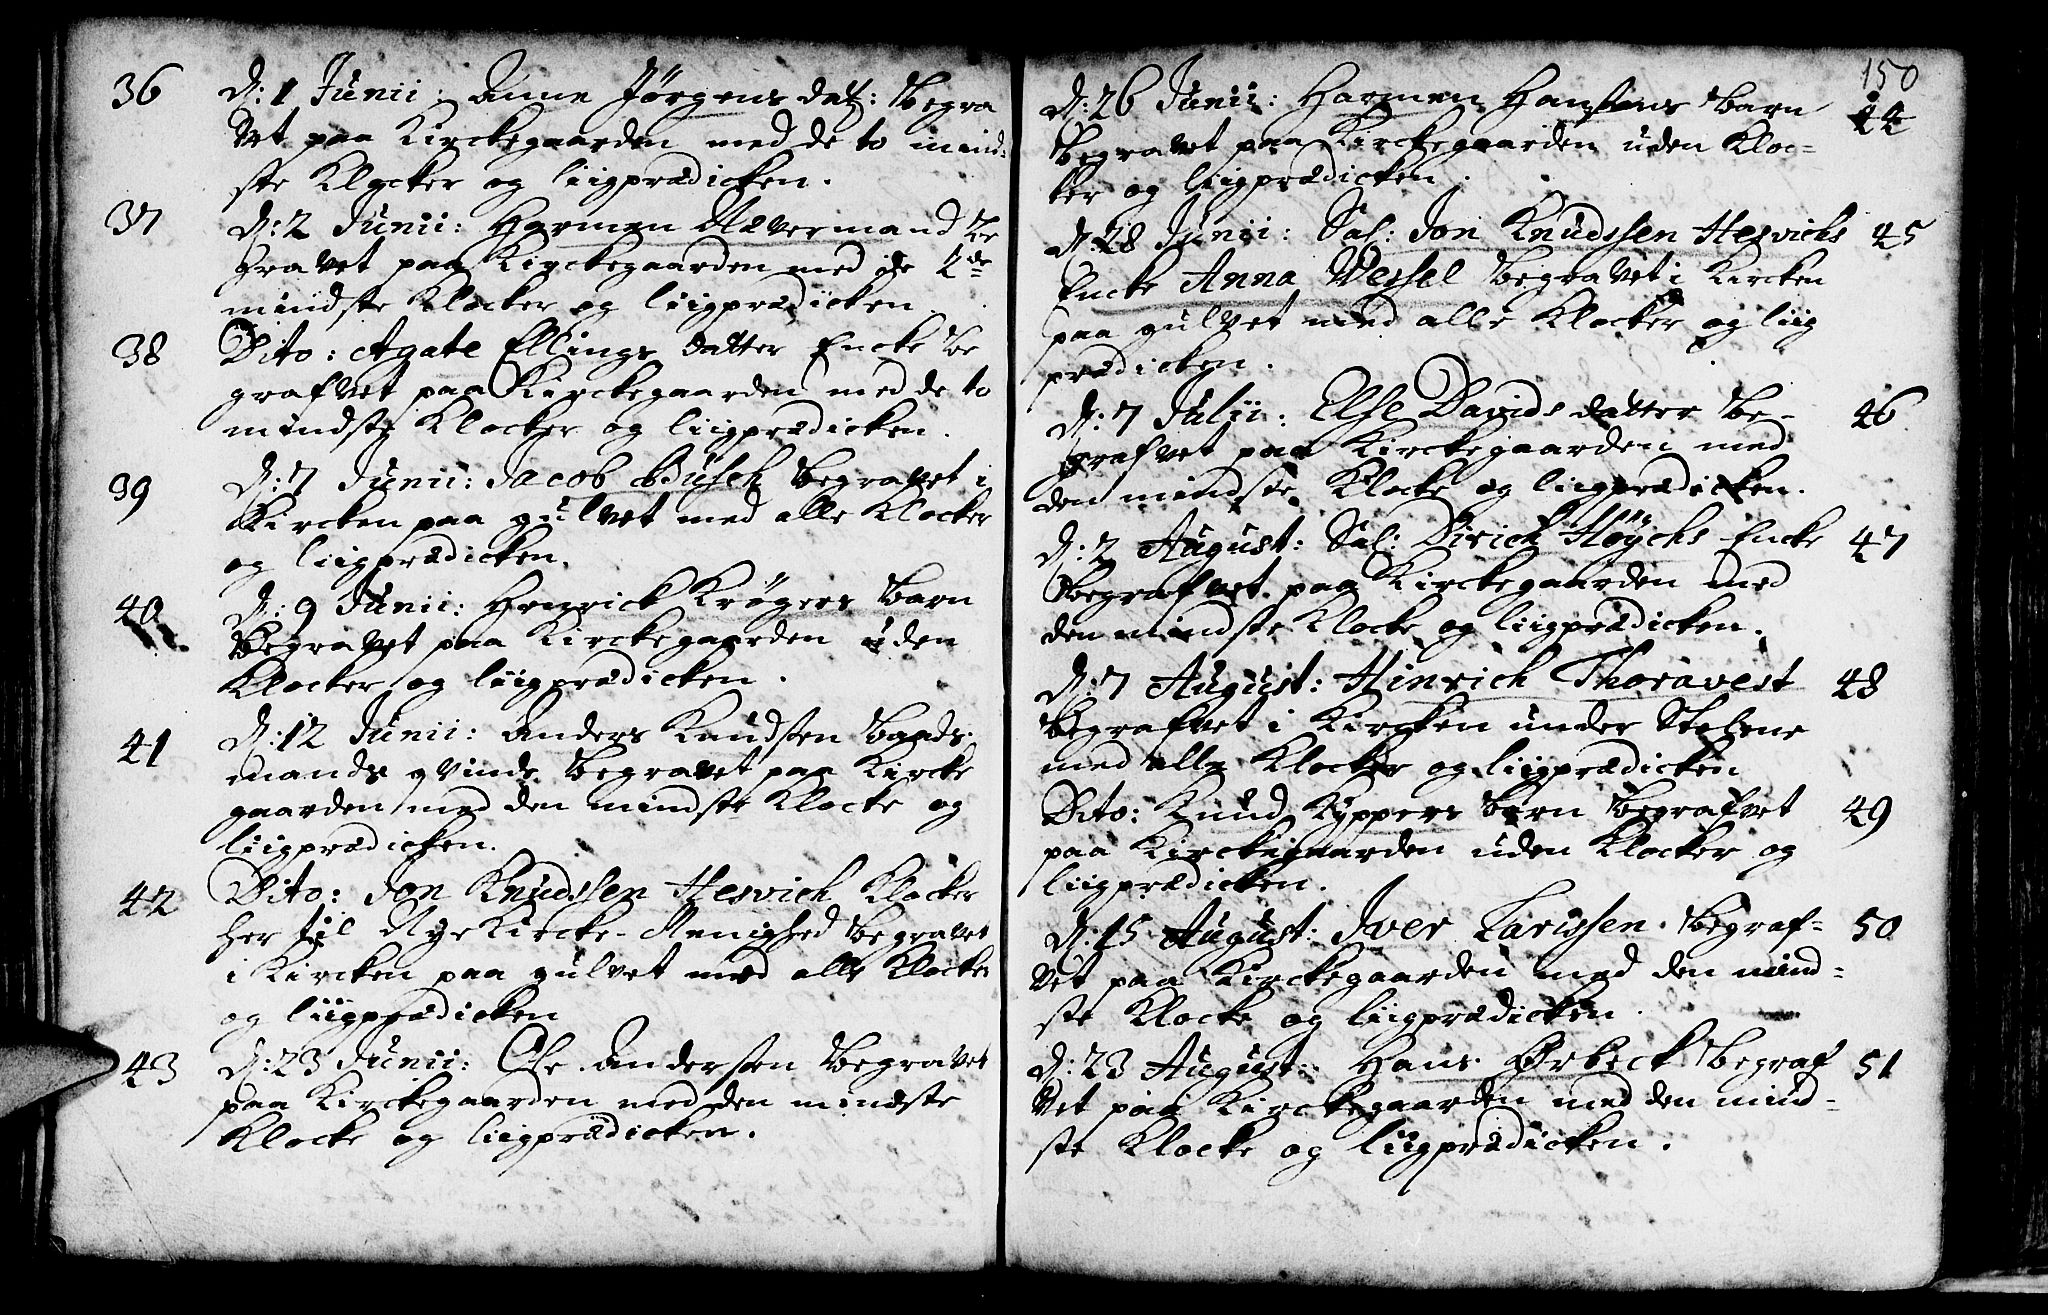 36 d: 1 Junii: Anne Jørgens dat: Begra
vet paa Kirckegaarden med de to mind-
ste Klocker og liigprædicken.
37 d: 2 Junii: HarmenÆvermand Be
gravet paa Kirckegaarden med de 2de
mindste Klocker og liigprædicken.
38 Dito: Agate Ellings datter Encke be
grafvet paa Kirckegaarden med de to
mindste Klocker og liigprædicken.
39 d: 7 Junii: Jacob Büsch Begravet i
Kircken paa gulvet med alle Klocker
og liigprædicken.
40 d: 9 Junii: Henrick Krøgers Barn
Begravet paa Kirckegaarden uden
Klocker og liigprædicken.
41 d: 12 Junii: Anders Knudsten Baads-
mands qvinde Begravet paa Kircke
gaarden med den mindste Klocke og
liigprædicken.
42 Dito: Jon Knudssen Hesvich Klocker
her til Nye Kircke-Menighed Begravet
i Kircken paa gulvet med alle Klocker
og liigprædicken
43 d: 23 Junii: Ole Andersen Begravet
paa Kirckegaarden med den mindste
Klocke og liigprædicken.
150
d: 26 Junii: Harmen Hansens Barn 44
Begravet paa Kirckegaarden uden Kloc-
ker og liigprædicken.
d: 28 Junii: Sal: Jon Knudssen Hesvichs 45
Encke Anna Wessel Begravet i Kircken
paa gulvet med alle Klocker og liig
prædicken.
d: 7 Julii: Else Davids datter Be- 46
grafvet paa Kirckegaarden med
den mindste Klocke og liigprædicken.
d: 2 August: Sal: Dirich Høychs Encke 47
Begrafvet paa Kirckegaarden med
den mindste Klocke og liigprædicken.
d: 7 August: Hinrich Thoravest 48
Begrafvet i Kircken under Stolene
med alle Klocker og liigprædicken
Dito: Knud Kyppers Barn Begrafvet 49
paa Kirckegaarden uden Klocker og
liigprædicken.
d: 15 August: Iver Larissen Begraf- 50
vet paa Kirckegaarden med den mind-
ste Klocke og liigprædicken.
d: 23 August: Hans Ørbeck Begraf 51
vet paa Kirckegaarden med den mind-
ste Klocke og liigprædicken.